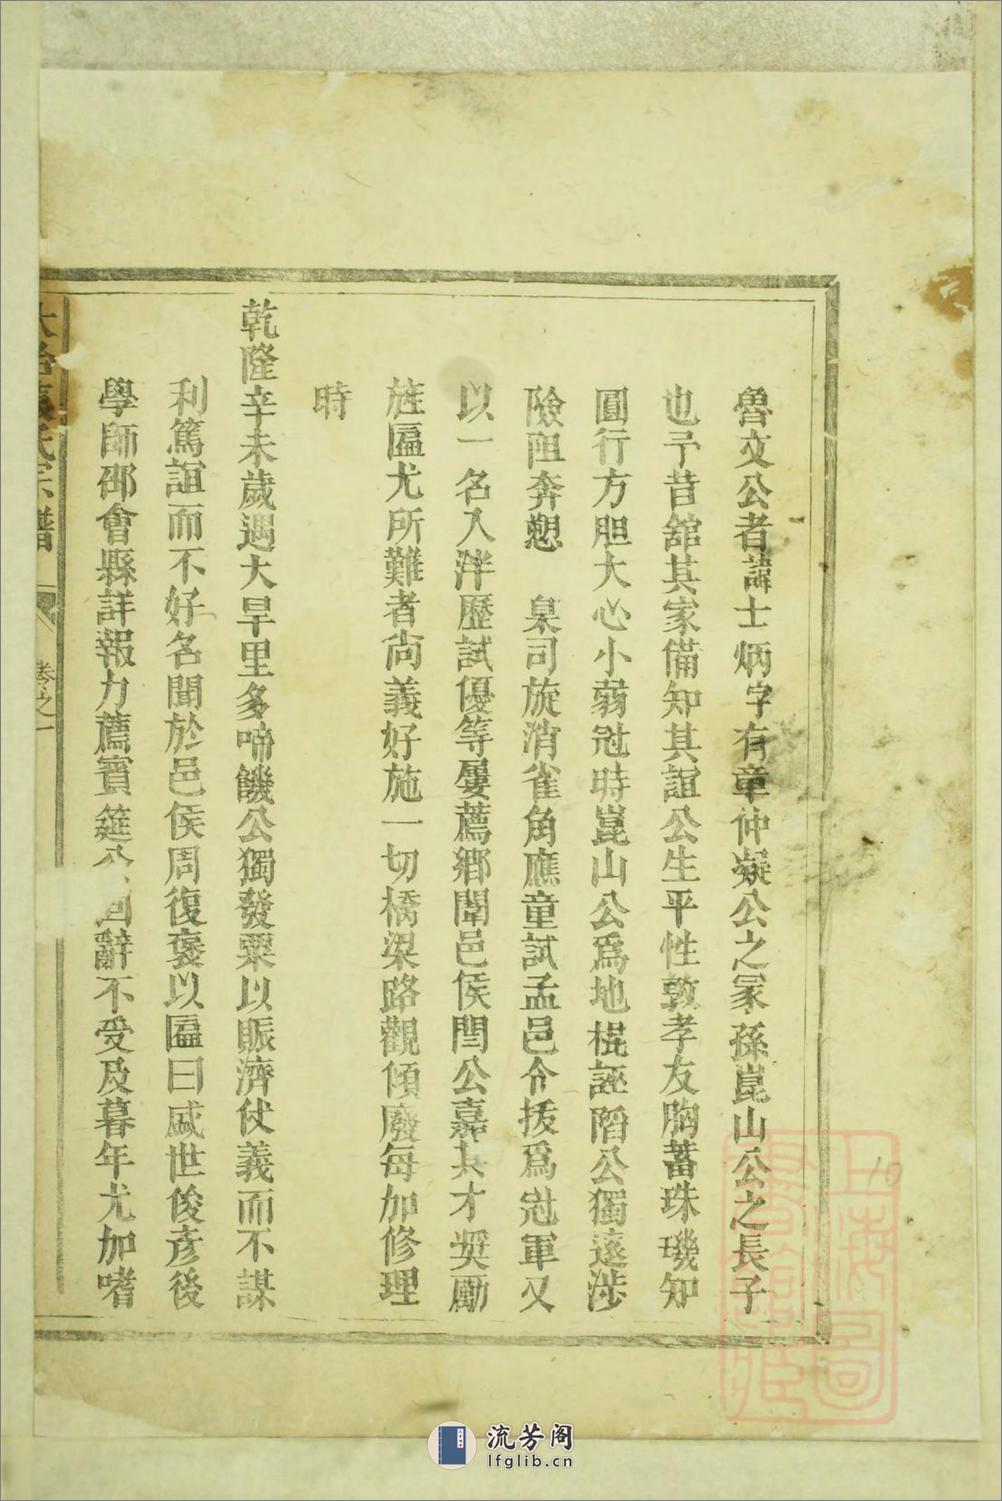 魯文公者諱士炳字有章仲凝公之冢孫崑山公之長子
也予昔舘其家備知其誼公生平性敦孝友胸蓄珠璣知
圓行方胆大心小弱冠時崑山公爲地棍誣陷公獨遠涉
險阻奔愬 臬司旋消雀角應童試孟邑令拔爲冠軍又
以一名入泮歷試優等屢薦鄉闈邑侯閆公嘉其才奨勵
旌匾尤所難者尚義好施一切橋梁路觀傾廢每加修理
時
乾隆辛未歲遇大旱里多啼饑公獨發粟以賑濟仗義而不謀
利篤誼而不好名聞於邑侯周復褒以匾曰盛世俊彥後
學師邵會縣詳報力薦賓筵公辭不受及暮年尤加嗜
氏宗譜
卷之一
上海圖書館藏
10
流芳阁
lfglib.cn